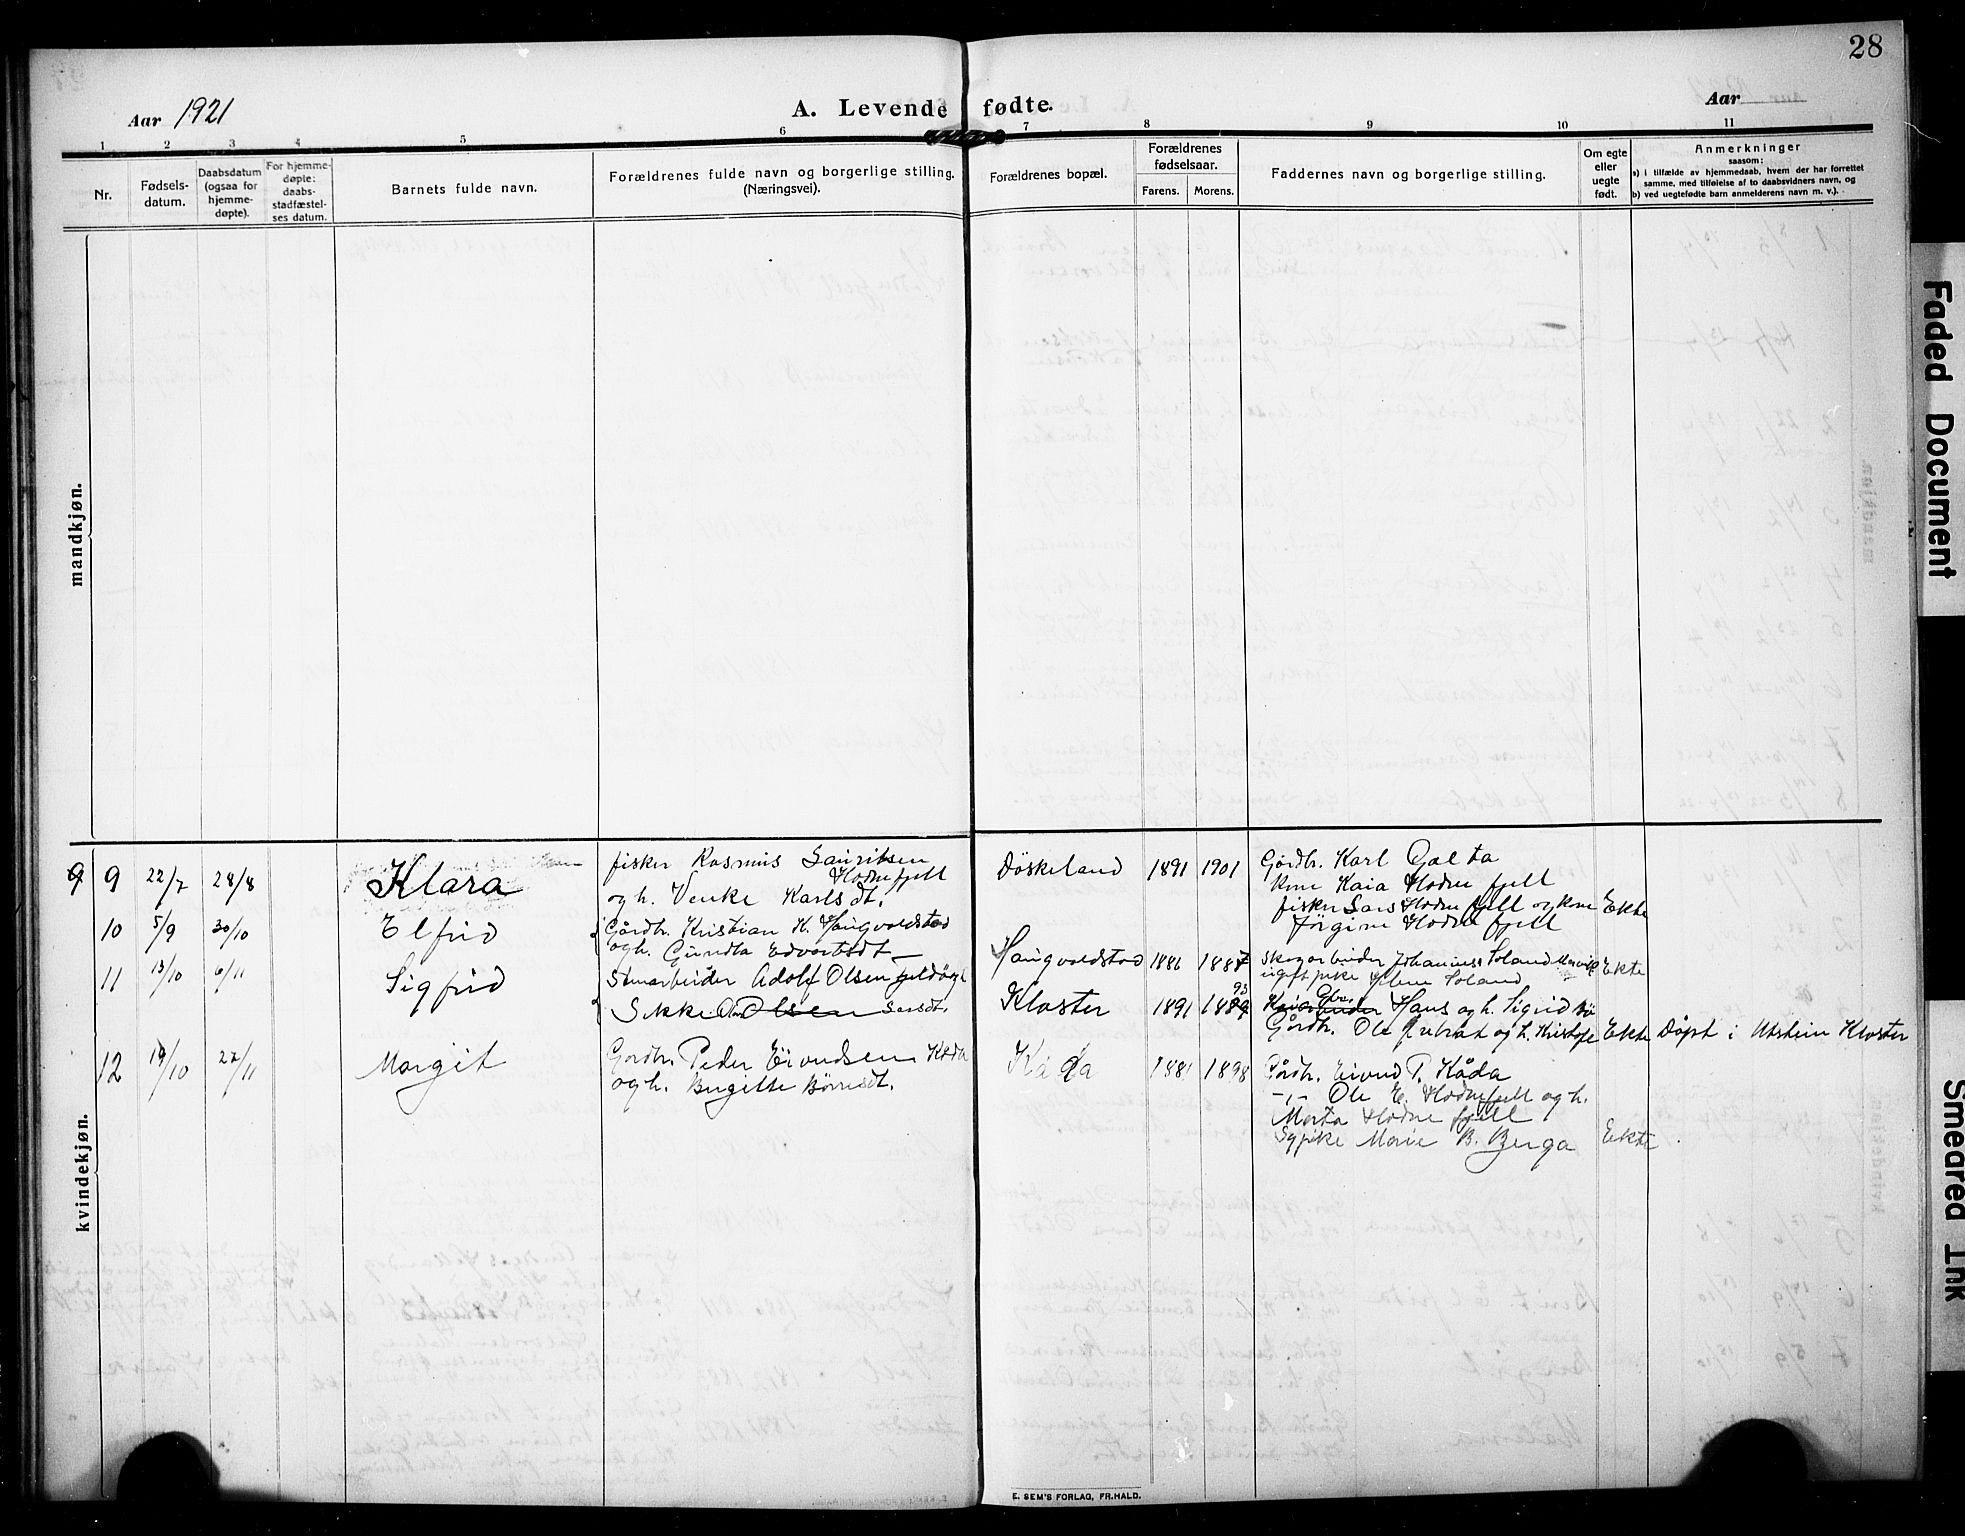 28
Aar 1921
A. Levende fødte.
Aar
1 2 3 4 5 6 7 8 9 10 11
Nr.
Fødsels-
datum.
Daabsdatum
(ogsaa for
hjemme-
døpte).
For hjemme-
døpte:
daabs-
stadfæstel-
ses datum.
Barnets fulde navn.
Forældrenes fulde navn og borgerlige stilling.
(Næringsvei).
Forældrenes bopæl.
Forældrenes
fødselsaar.
Farens. Morens.
Faddernes navn og borgerlige stilling.
Om egte
eller
uegte
født.
Anmerkninger
saasom:
a) i tilfælde av hjemmedaab, hvem der har forrettet
samme, med tilføielse af to daabsvidners navn, og
b) ved uegtefødte barn anmelderens navn m. v.).
mandkjøn.
kvindekjøn.
9 9 22/7 28/8 Klara
fisker Rasmus Lauritsen
Hodnefjell
og h. Venke Karlsdt.
Døskeland 1891 1901
Gårdbr. Karl Galta
Kone Kaia Hodnefjell
fisker Lars Hodnefjell og kone
Jørgine Hodnefjell
Ekte
10 5/9 30/10 Elfrid
Gårdbr. Kristian K. Haugvaldstad
og h. Gundla Edvartsdt
Haugvaldstad 1886 1887
Johannes Soland
ugift pike Soland
Ekte
11 13/10 6/11 Sigfrid
Stenarbeider Adolf Olsen
Olsen Larsdt.
Kloster 1891 1889
93
Hans og h. Sigrid
Gårdbr. Ole og h.
Ekte Døpt i Utstein Kloster
12 19/10 27/11 Margit
Gårdbr. Peder Eivindsen Kåda
og h. Birgitte Børresdt.
Kåda 1881 1898
Gårdbr. Eivind P. Kåda
-"- Ole E. Hodnefjell og h.
Marta Hodnefjell
Sypike Marie B. Berga
Ekte
E. SEM'S FORLAG, FR.HALD.
Faded Document
Smeared Ink